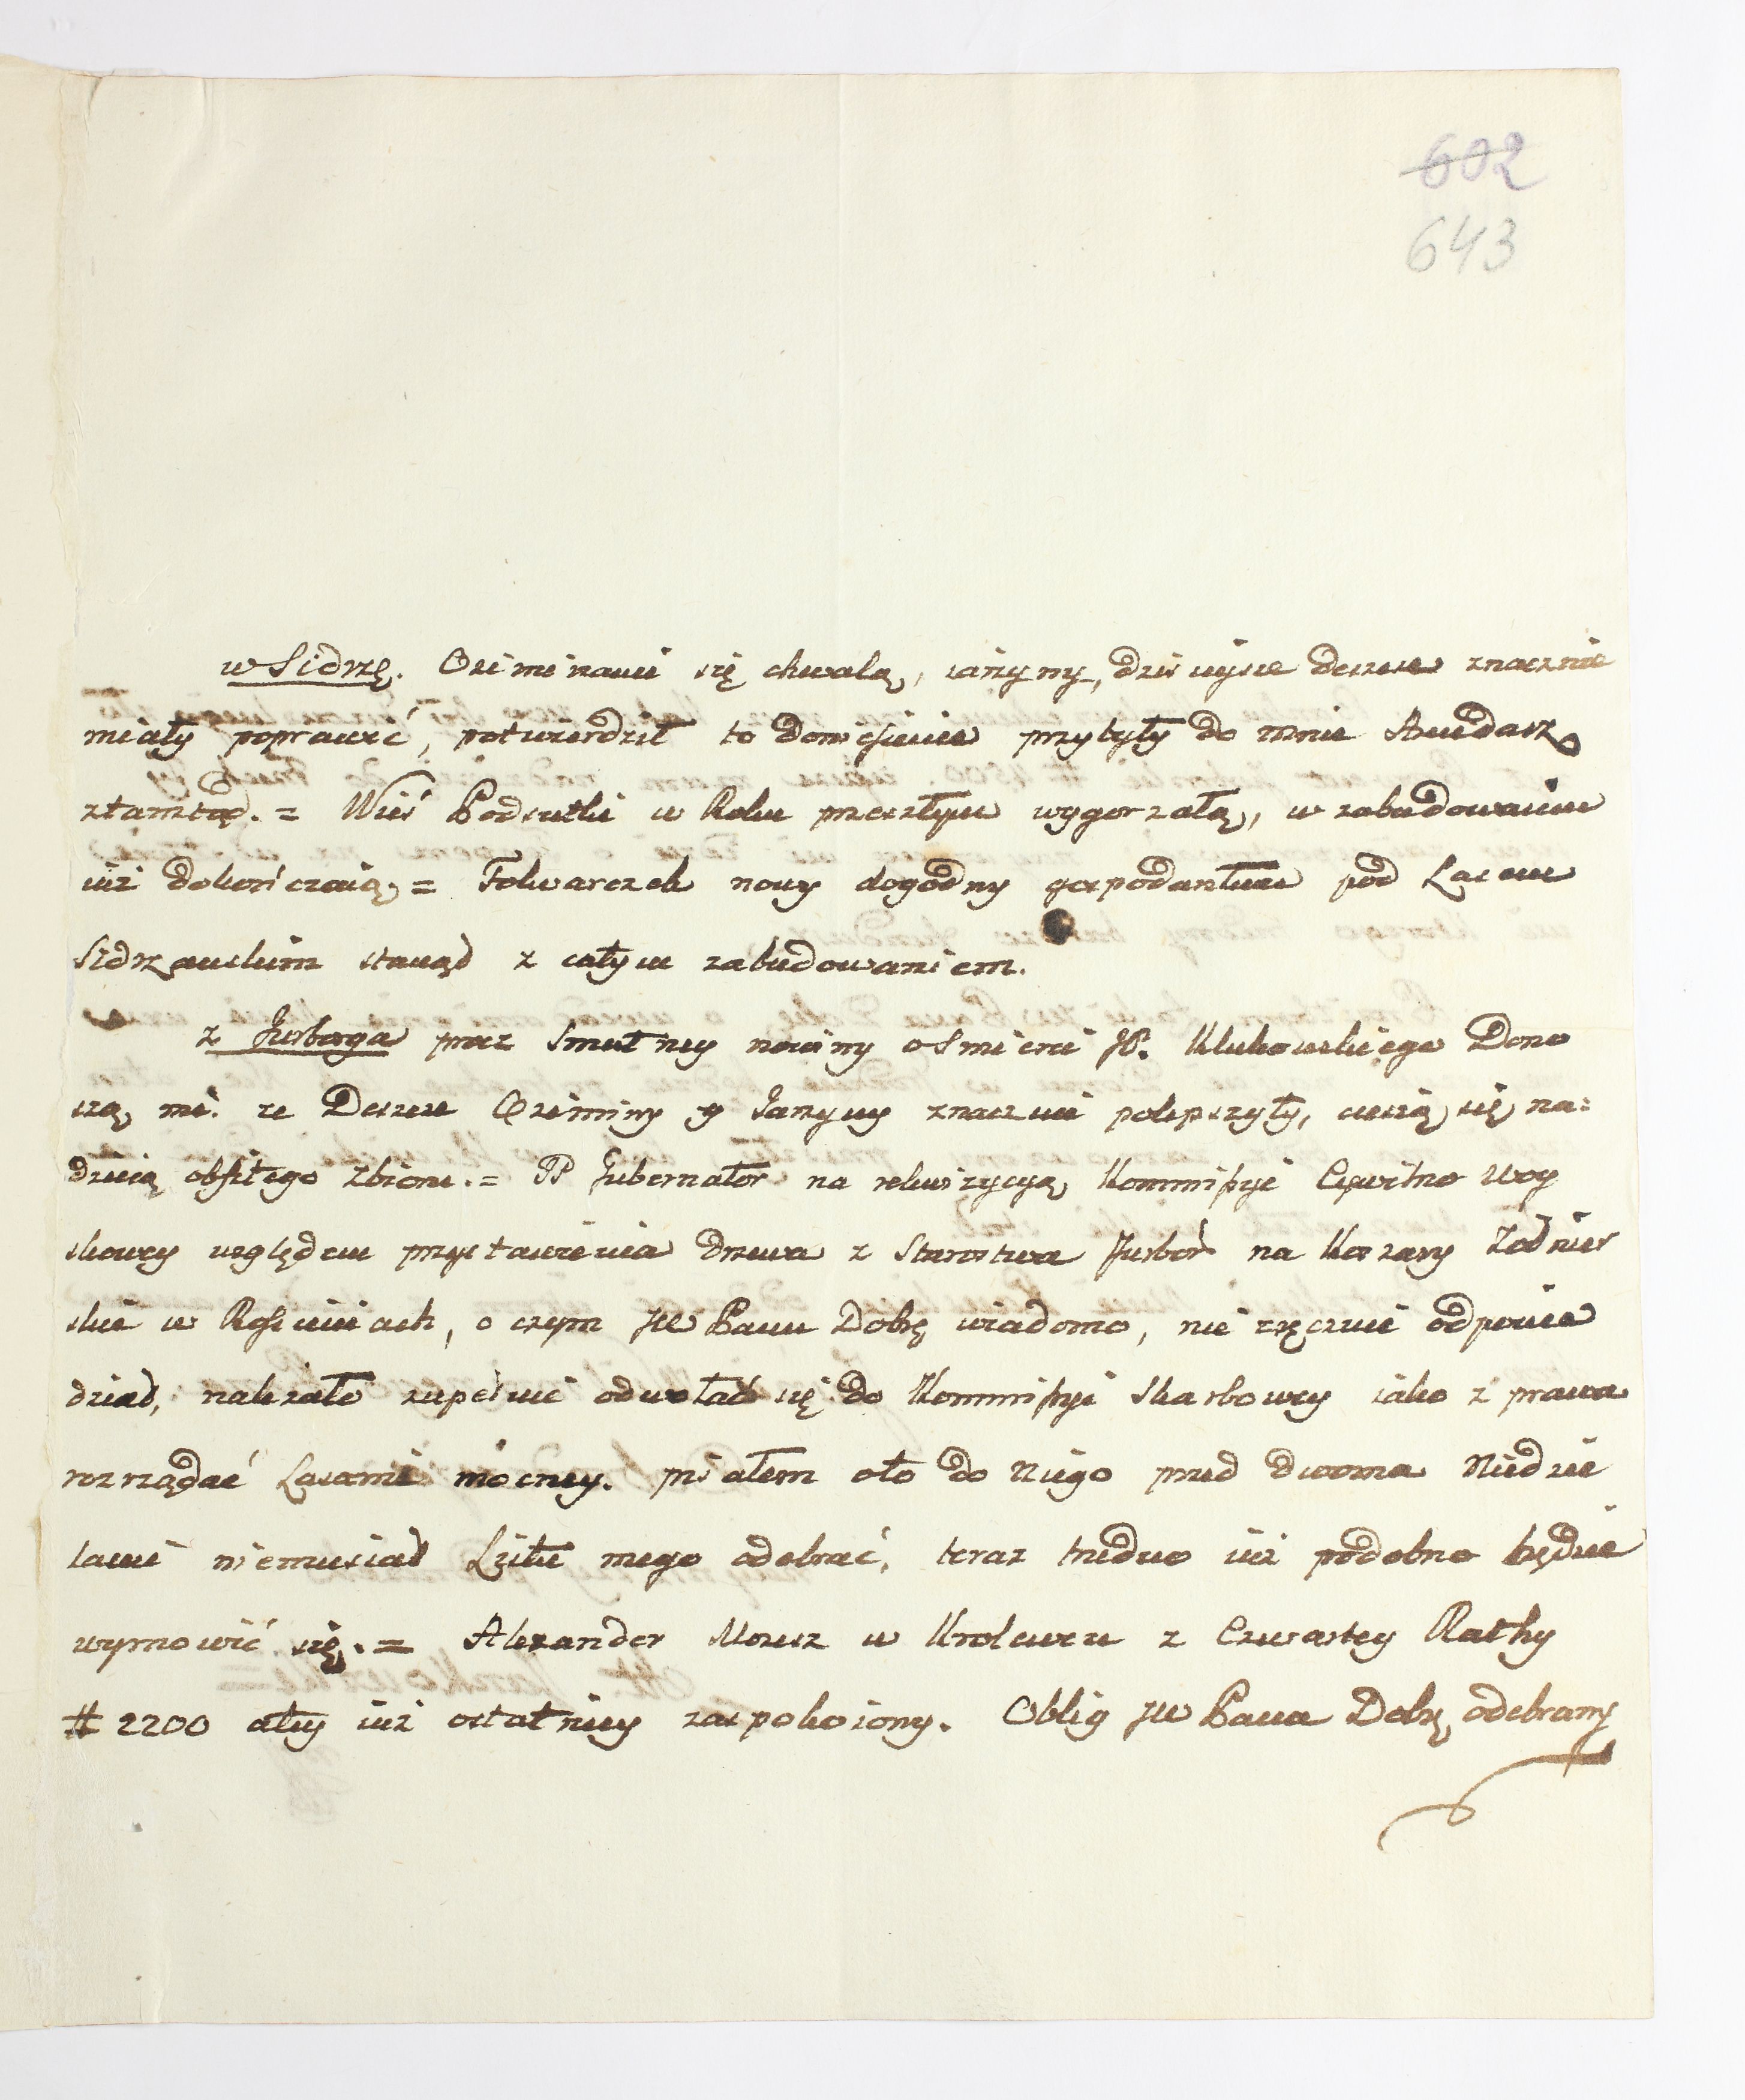 602
643
w Sidrzę. Oziminami się chwalą, iarzyny, dzisieysze deszcze znacznie
miały poprawić, potwierdził to doniesienie przybyły do mnie Arędarz
ztamtąd. = Wieś Podsutki w Roku przeszłym wygorzałą, w zabudowaniu
iuż dokończaią, = Folwarczek nowy dogodny gospodarstwu pod Lasem
Sidrzanskim stanął z całym zabudowaniem.
z Jurborga przez Smutney nowiny o Smierci JP. Klukowskiego Dono
szą mi. że Deszcze Oziminy y Jarzyny znacznie polepszyły, cieszą się na:
dzieią obfitego zbioru. = JP Gubernator na rekwizycyą Kommissyi Cywilno Woy
skowey względem przystawienia drzewa z Starostwa Jurbor: na Koszary Żołnier
skie w Rosieniach, o czym JW Panu Dobr: wiadomo, nie zręcznie odpowie
dział, należało zupełnie odwołać się do Kommissyi Skarbowey iako z prawa
rozrządać Lasami mocney. pisałem oto do niego przed dwoma Niedzie
lami niemusiał Listu mego odebrać, teraz trudno iuż podobno będzie
wymowić się. = Alexander Mozesz w Krolewcu z Czwartey Rathy
# 2200 ały iuż ostatniey zaspokoiony. Oblig JW Pana Dobr: odebrany